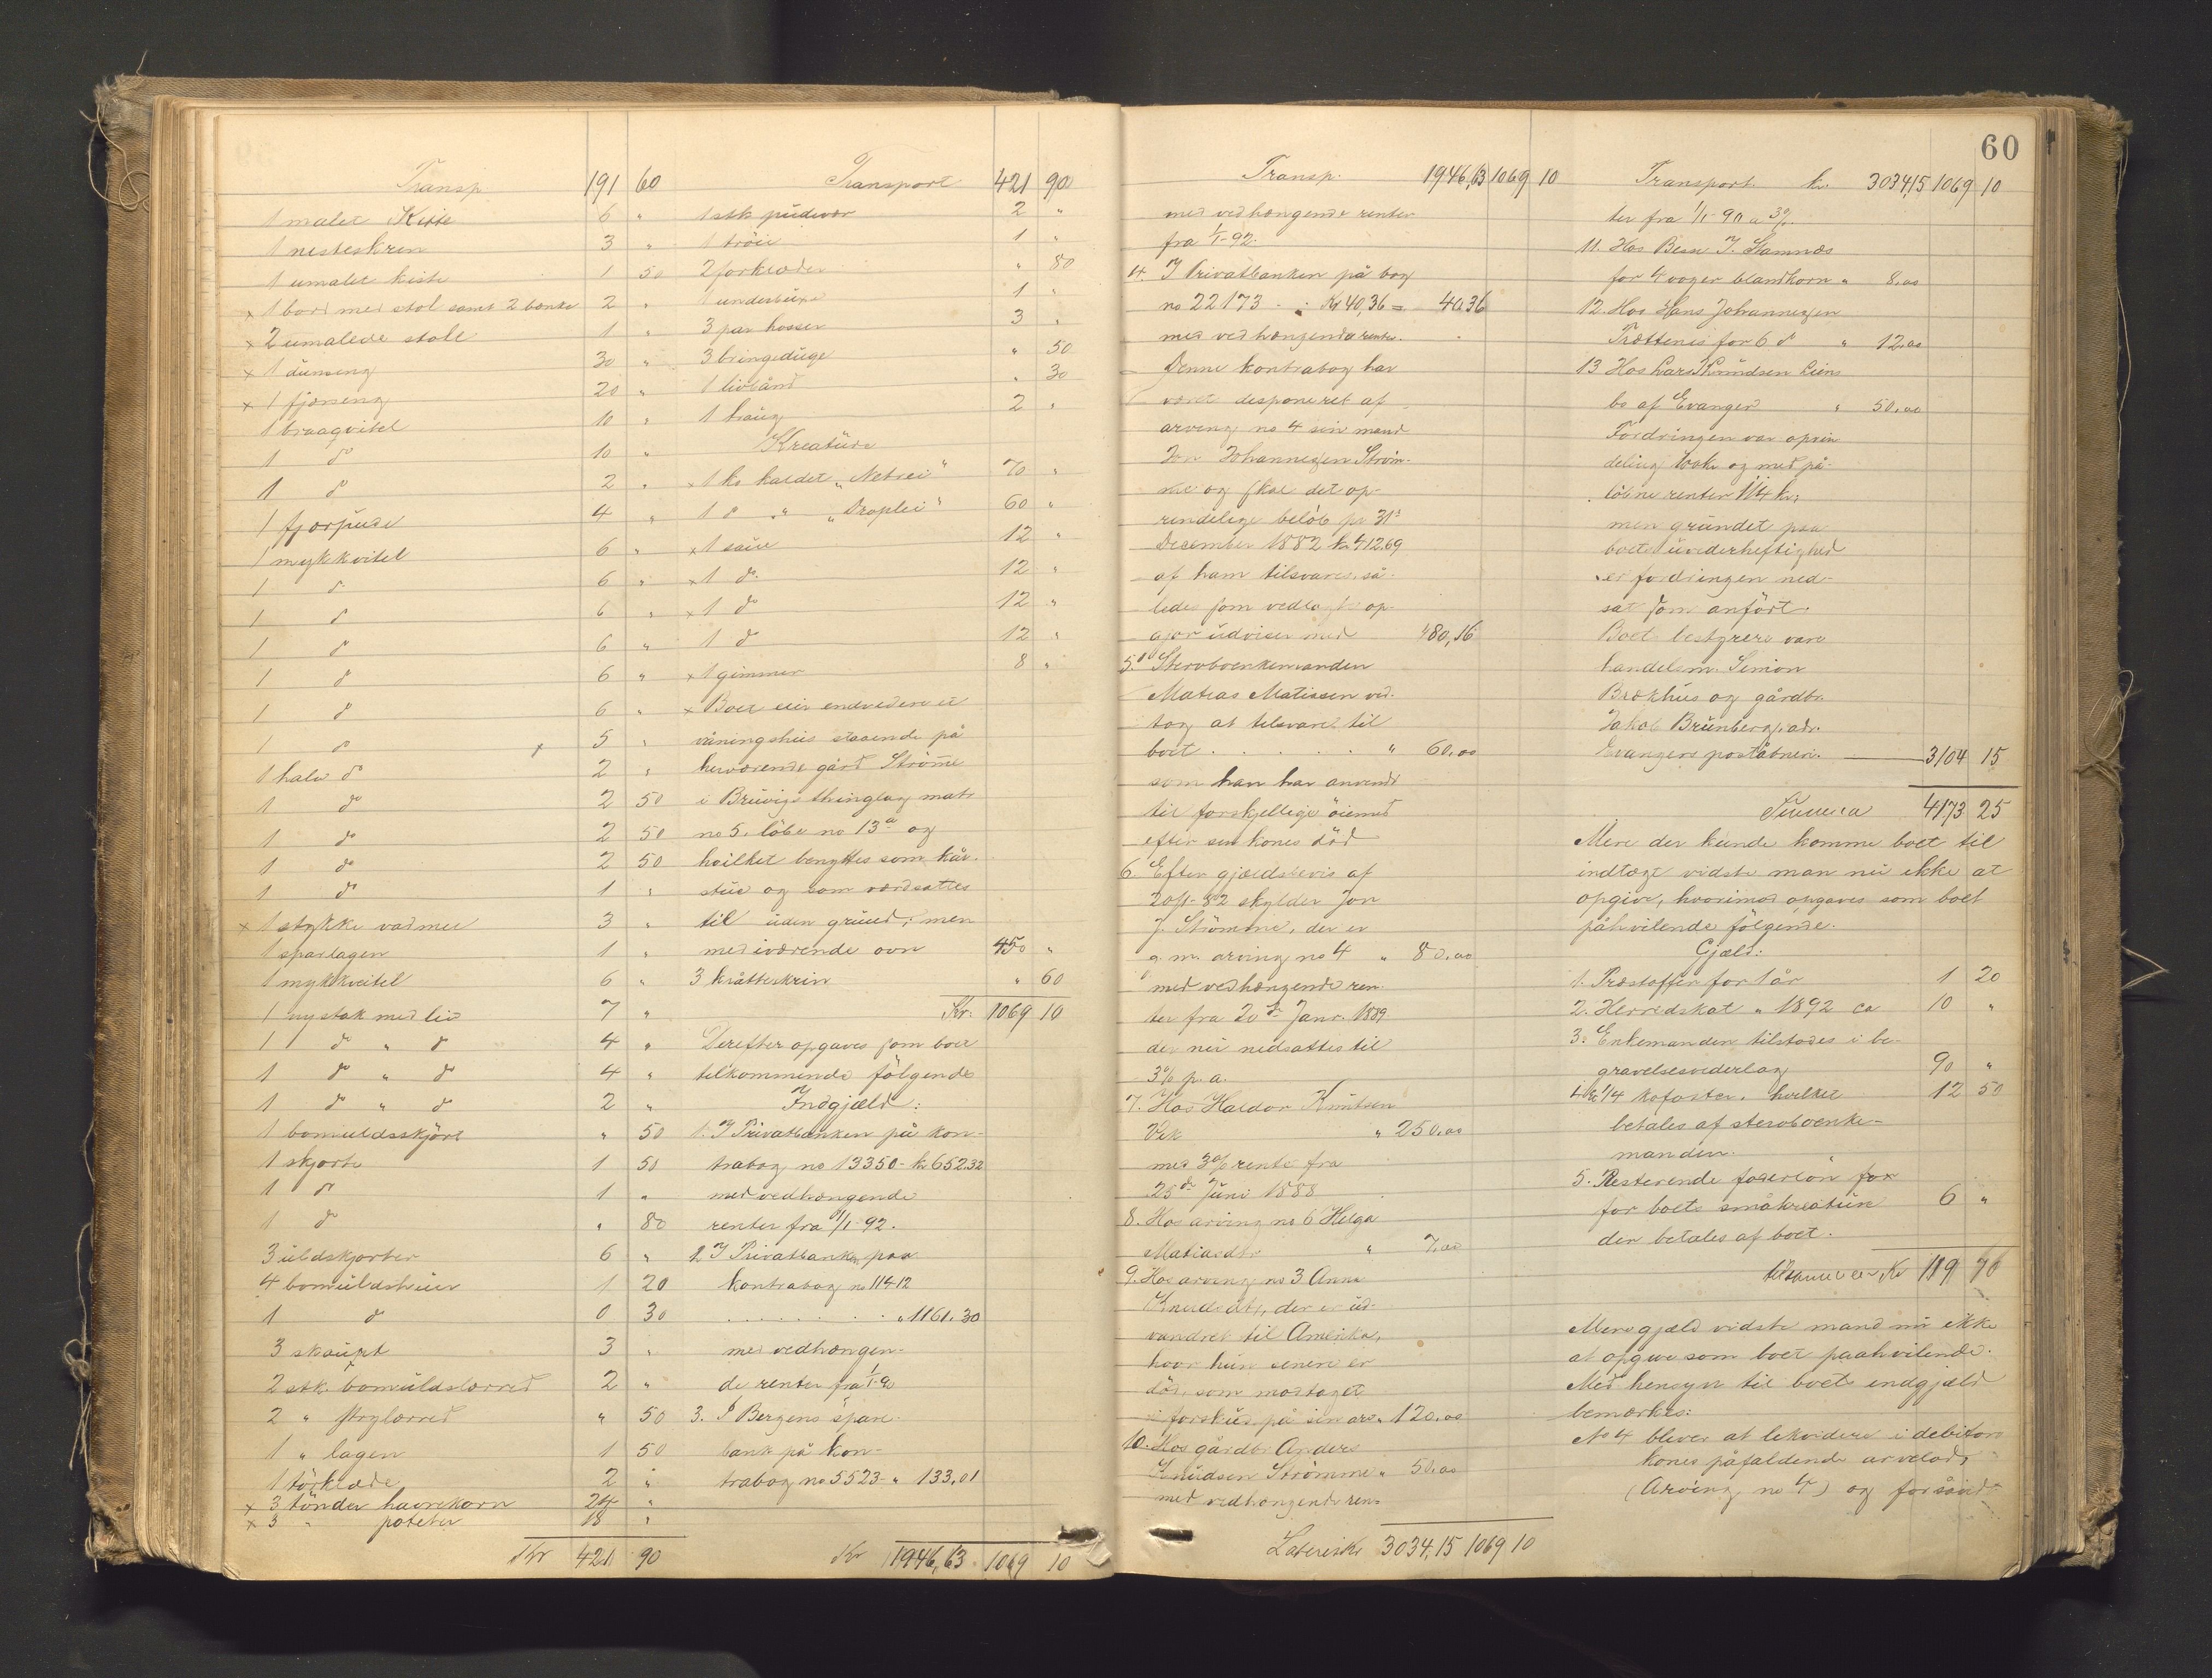 Transp. 191 60
1 malet Kiste 6 "
1 nisteskren 3 "
1 umalet kiste 1 50
x 1 bord med stol samt 2 bænke 2 "
x 2 umalede stole 1 "
x 1 dunseng 30 "
x 1 fjærseng 20 "
1 braagvitel 10 "
1 do 10 "
1 do 2 "
1 fjærpude 4 "
1 mykkvitel 6 "
1 do 6 "
1 do 6 "
1 do 6 "
1 do 6 "
1 do 6 "
1 do 5 "
1 halv do 2 "
1 do 2 50
1 do 2 50
1 do 2 50
1 do 1 "
x 1 stykke vadmel 3 "
1 sparlagen 1 "
1 mykkveitel 6 "
1 nystak med liv 7 "
1 do " do 4 "
1 do " do 4 "
1 do " do 2 "
1 bomuldsskjört " 50
1 skjorte 1 50
1 do 1 "
1 do " 80
3 uldskjorter 6 "
4 bomuldshuer 1 20
1 do 0 30
3 skaupt 3 "
2 stk. bomuldslærred 2 "
2 " strylærred " 50
1 " lagen 1 50
1 törklæde 2 "
x 3 tönder havrekorn 24 "
x 3 " poteter 18 "
Kr 421 90
Transport 421 90
1 stk pudevar 2 "
1 tröie 1 "
2 forklæder " 80
1 underbuxe 1 "
3 par hosser 3 "
3 bringeduge " 50
1 livbånd " 30
1 haug 2 "
Kreature
x 1 ko kaldet "Netrei" 70 "
1 do " "Droplei" 60 "
x 1 saue 12 "
x 1 do 12 "
x 1 do 12 "
1 do 12 "
x 1 gimmer 8 "
x Boet eier endvedere et
våningshus staaende på
herværende gård Strömme
i Bruvigs thinglag matr
no 5. löbe no 13a og
hvilket benyttes som kår-
stue og som værdsattes
til uden grund; men
med iværende ovn 450 "
3 kråtteskrin " 60
Kr. 1069 10
Derefter opgaves som boet
tilkommende fölgende
Indgjæld:
1. I Privatbanken på kon-
trabog no 13350 - kr 652.32
med vedhængende
renter fra 1/1 92.
2 I Privatbanken paa
kontrabog no 11412
. . . . . . " 1161.30
med vedhængen-
de renter fra 1/1-92
3. I Bergens spare-
bank på kon-
trabog no 5523 - " 133,01
Kr 1946,63 1069 10
60
Transp. 1946,63 1069 10
med vedhængende renter
fra 1/1-92.
4. I Privatbanken på bog
no 22173 - : Kr 40,36 = 40,36
med vedhængende renter.
Denne kontrabog har
været desponeret af
arving no 4 sin mand
Jon Johannesen Ström-
me og skal det op-
rendelige belöb pr 31te
December 1882 kr 412.69
af ham tilsvares, så-
ledes som vedlagte op-
gjör udviser med 480,16
5. Stervboenkemanden
Matias Matissen ved-
tog at tilsvare til
boet . . . . . . " 60.00
som han har anvendt
til forskjellige öiemed
efter sin kones död
6. Efter gjældsbevis af
20/1-82 skylder Jon
J. Strömme, der er
g. m. arving no 4 " 80.00
med vedhængende ren-
ter fra 20de Janr. 1889
der nu nedsattes til
3% p.a.
7. Hos Haldor Knutsen
Vik " 250.00
med 3% rente fra
25de Juni 1888
8. Hos arving no 6 Helga
Matiasdtr " 7.00
9. Hos arving no 3 Anna
Knudsdtr, der er ud-
vandret til Amerika,
hvor hun senere er
död, som modtaget
i forskud på sin arv " 120.00
10. Hos gårdbr. Anders
Knudsen Strömme " 50.00
med vedhængende ren-
Lateris Kr 3034,15 1069 10
Transport. kr. 3034,15 1069 10
ter fra 1/1-90 a 3%.
11. Hos Besse J. Stamnæs
for 4 voger blandkorn " 8.00
12. Hos Hans Johannesen
Trættenes for 6 do " 12.00
13 Hos Lars Knudsen Liens
bo af Evanger " 50.00
Fordringen var oprin
delig 100 kr og med på-
löbne renter 114 kr;
men grundet paa
boets uvederheftighed
er fordringen ned-
sat som anfört.
Boets bestyrere vare
handelsm. Simon
Brækhus og gårdbr.
Jakob Brunberg, adr.
Evangers poståbneri. 3104 15
Summa 4173 25
Mere der kunde komme boet til
indtægt vidste man nu ikke at
opgive, hvorimod opgaves som boet
påhvilende fölgende.
Gjæld:
1. Præstoffer for 1 år 1 20
2. Herredskat " 1892 ca 10 "
3. Enkemanden tilstodes i be-
gravelsesvederlag 90 "
4. 1/4 kofoster. hvilket 12 50
betales af stervboenke-
manden.
5. Resterende foderlön for
for boets småkreature 6 "
der betales af boet.
Kr 119 70
Mere gjæld vidste mand nu ikke
at opgive som boet paahvilende.
Med hensyn til boets endgjæld
bemærkes:
No 4 bliver at lekvidere i debitors
kones påfaldende arvelod,
(Arving no 4) og forsåvidt